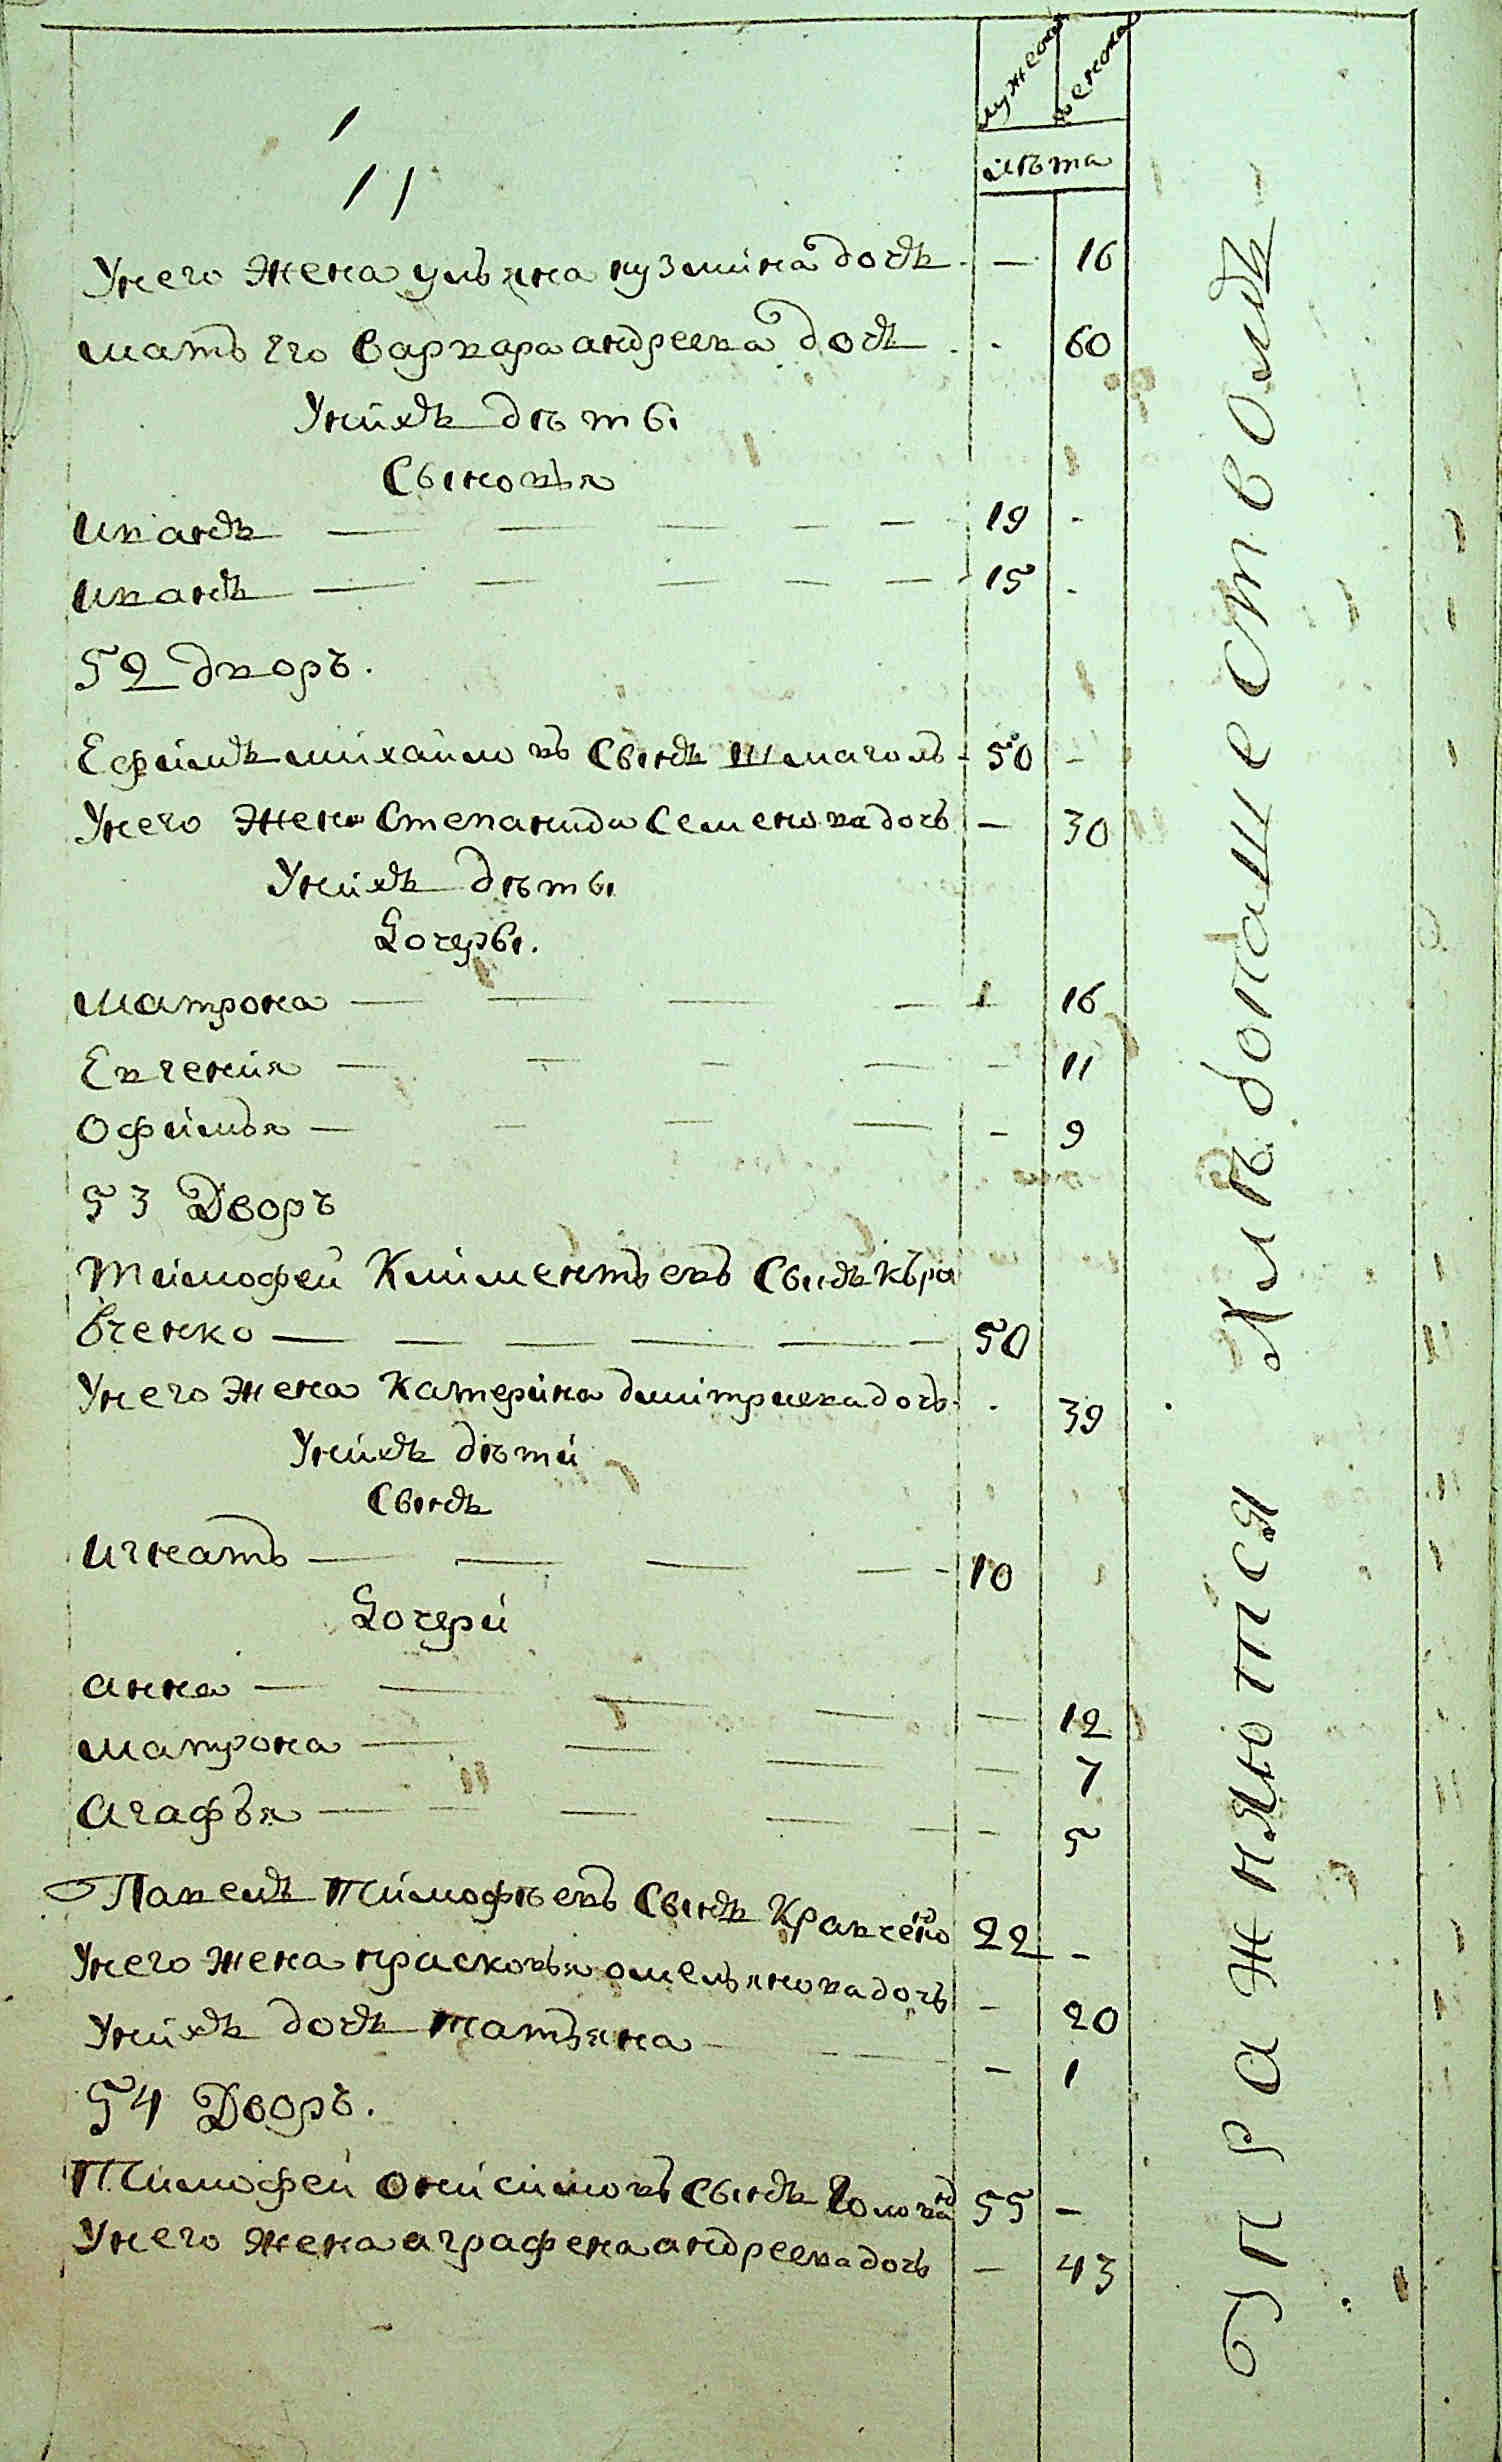 мужеска женска
лѣта
У него жена ульяна кузмина дочъ - 16
мать его варвара андреева дочъ - 60
У нихъ дѣты
Сыновья
иванъ 19 -
иванъ 15 -
52 дворъ.
Ефимъ михайловъ Сынъ шмаголь 50 -
У него жена Степанида Семенова дочь - 30
У нихъ дѣты
Дочеры.
матрона - 16
Евгения - 11
Офимья - 9
53 Дворъ
Тимофей Климентьевъ Сынъ Къра
вченко 50
У него жена Катерина дмитриева дочь - 39
У нихъ дѣти
Сынъ
игнатъ 10
Дочери
анна - 12
матрона - 7
агафья - 5
Павелъ Тимофѣевъ Сынъ Кравченко 22 -
У него жена прасковья омельянова дочь - 20
У нихъ дочъ татьяна - 1
54 Дворъ.
Тимофей онисимовъ Сынъ 55 -
У него жена аграфена андреева дочь - 43
Упражняются Хлѣбопашествомъ